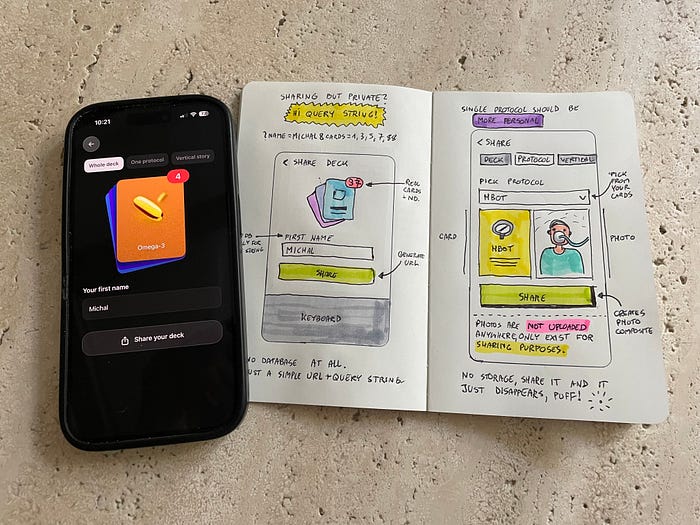 10:21
Whole deck
One protocol
Vertical story
4
Omega-3
Your first name
Michal
Share your deck
SHARING BUT PRIVATE?
HI QUERY STRING!
?NAME=MICHAL&CARDS=1,3,5,7,88
< SHARE DECK
37
REAL
CARDS
+ NO.
FIRST NAME
MICHAL
SHARE
GENERATE
URL
KEYBOARD
NO DATABASE AT ALL.
JUST A SIMPLE URL+QUERY STRING
SINGLE PROTOCOL SHOULD BE
MORE PERSONAL
< SHARE
DECK
PROTOCOL
VERTICAL
PICK PROTOCOL
HBOT
PICK
FROM
YOUR
CARDS
CARD
HBOT
PHOTO
SHARE
CREATES
PHOTO
COMPOSITE
PHOTOS ARE NOT UPLOADED
ANYWHERE, ONLY EXIST FOR
SHARING PURPOSES.
NO STORAGE, SHARE IT AND IT
JUST DISAPPEARS, PUFF!